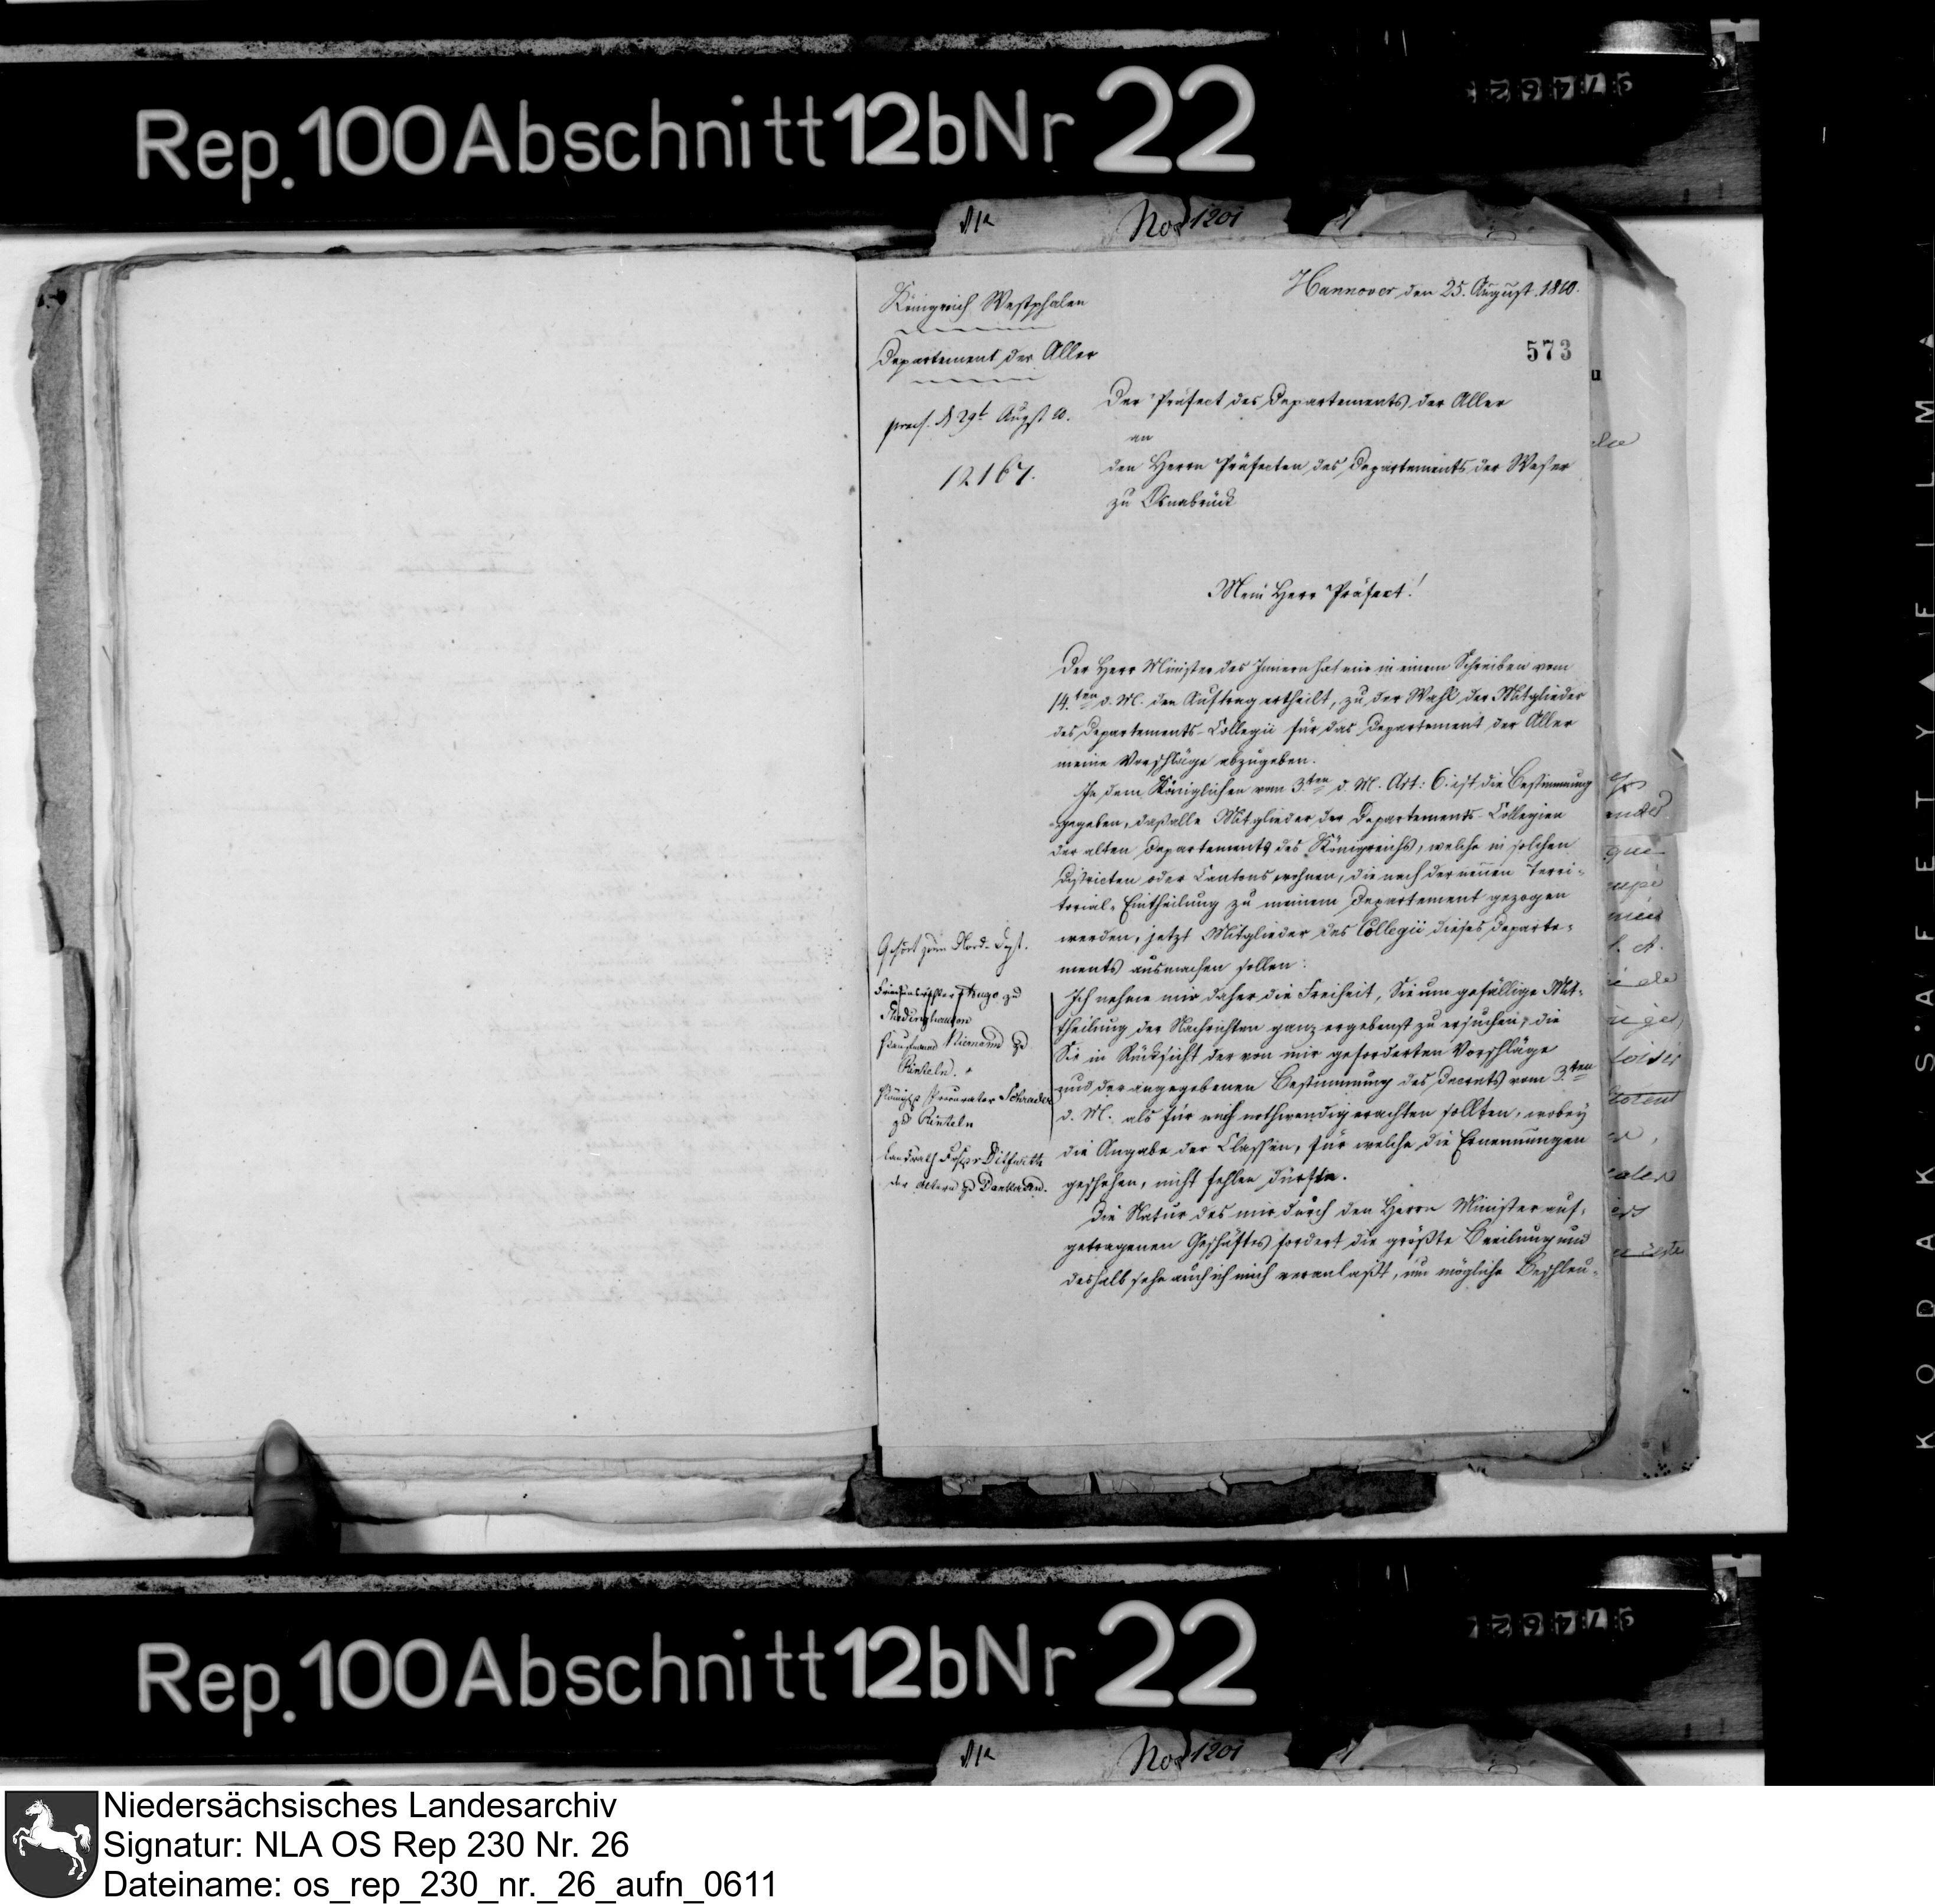 Rep. 100 Abschnitt 12b Nr 22
No 1201
Hannover den 25. August. 1810.
Königreich Westphalen
573
Departement der Aller
praes. d 29t Augst. a.
12167.
Der Präfect des Departements der Aller
an
den Herrn Präfecten des Departements der Weser
zu Osnabrück
Mein Herr Präfect!
Der Herr Minister des Innern hat mir in einem Schreiben vom
14.ten d. M. den Auftrag ertheilt, zu der Wahl der Mitglieder
des Departements-Collegii für das Departement der Aller
meine Vorschläge abzugeben.
In dem Königlichen vom 3.ten d. M. Art: 6. ist die Bestimmung
gegeben, daß alle Mitglieder der Departements-Collegien
der alten Departements des Königreichs, welche in solchen
Districten oder Cantons wohnen, die nach der neuen Terri-
torial-Eintheilung zu meinem Departement gezogen
werden, jetzt Mitglieder des Collegii dieses Departe-
ments ausmachen sollen:
Ich nehme mir daher die Freiheit, Sie um gefällige Mit-
theilung der Nachrichten ganz ergebenst zu ersuchen, die
Sie in Rücksicht der von mir geforderten Vorschläge
und der angegebenen Bestimmung des Decrets vom 3.ten
d. M. als für mich nothwendig erachten sollten, wobey
die Angabe der Classen, für welche die Ernennungen
geschehen, nicht fehlen dürfte.
Die Natur des mir durch den Herrn Minister auf-
getragenen Geschäftes fordert die größte Beeilung und
deshalb sehe auch ich mich veranlaßt, um mögliche Beschleu-
Gehört zum Nord-Dept.
Friedensrichter Hugo zu
Kaufmann Niemann zu
Rinteln.
Königl. Procurator Schrader
zu Rinteln
Landrath von Ditfurth
der ältere zu Dankersen.
Rep. 100 Abschnitt 12b Nr 22
No 1201
KODAK SAFETY FILM
Niedersächsisches Landesarchiv
Signatur: NLA OS Rep 230 Nr. 26
Dateiname: os_rep_230_nr._26_aufn_0611